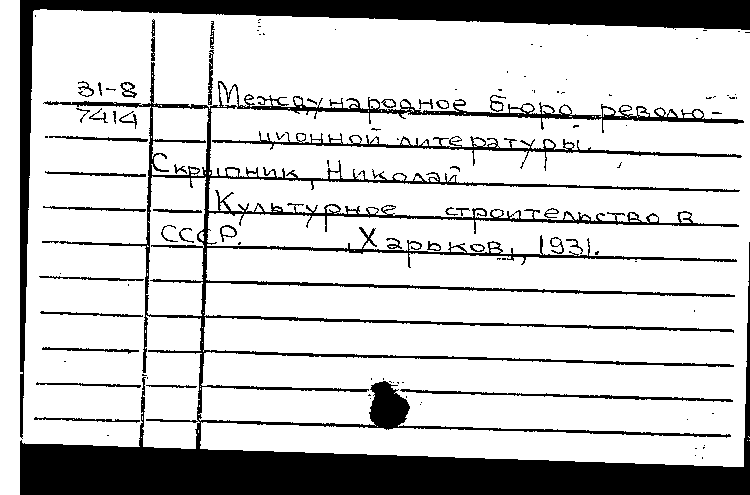 31-8
7414
Международное бюро револю-
ционной литературы.
Скрыпник, Николай
Культурное строительство в
СССР. Харьков, 1931.